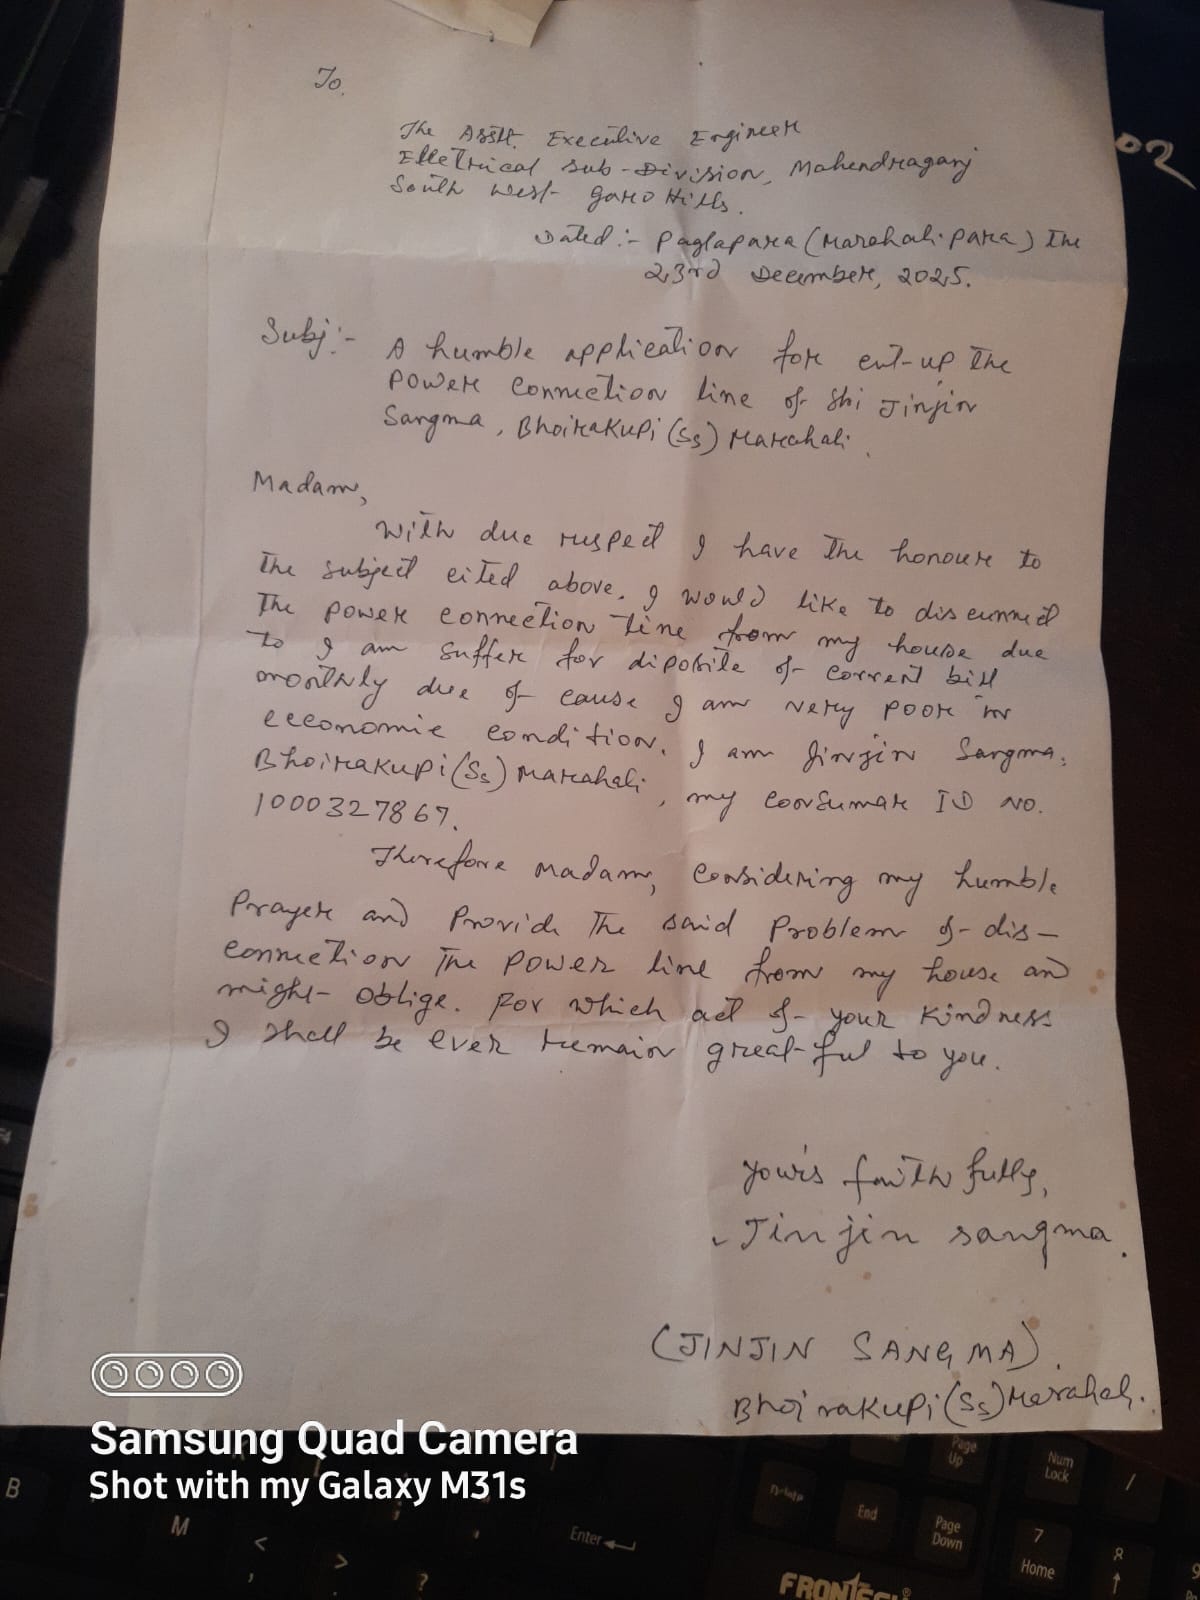 To,
The Asstt. Executive Engineer
Elletrical Sub-Division, Mahendraganj
South West Garo Hills.
Dated:- Paglapara (Marahali para) The
23rd December, 2025.
Subj:- A humble application for cut-up the
power connection line of Shi Jinjin
Sangma, Bhoirakupi (Ss) Marahali.
Madam,
With due respect I have the honour to
the subject cited above. I would like to disconnect
the power connection line from my house due
to I am suffer for diposite of corrent bill
monthly due of cause I am very poor in
economic condition. I am Jinjin Sangma,
Bhoirakupi (Ss) Marahali, my consumar ID NO.
1000327867.
Therefore Madam, considering my humble
Prayer and Provide the said Problem of dis-
connection the power line from my house and
might oblige. For which act of your kindness
I shall be ever remain great-ful to you.
Your's faithfully,
Jinjin sangma.
(JINJIN SANGMA).
Bhoirakupi (Ss) Marahali.
02
Samsung Quad Camera
Shot with my Galaxy M31s
B
M
<
,
>
?
Enter
Delete
End
Page
Up
Page
Down
Num
Lock
/
7
Home
8
9
FRONTECH